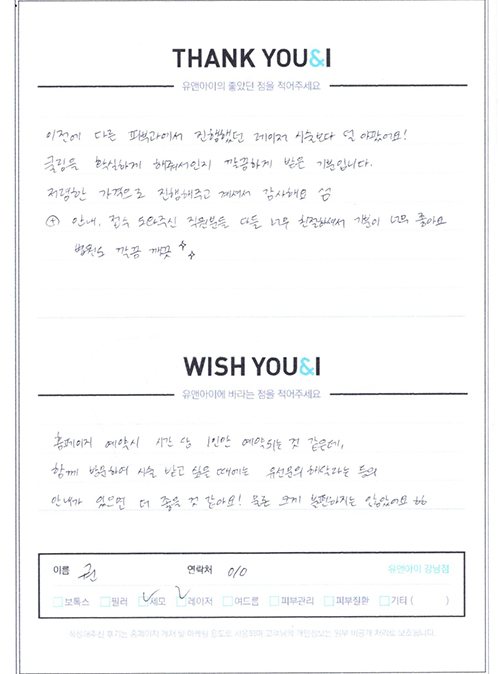 THANK YOU&I
유앤아이의 좋았던 점을 적어주세요
이전에 다른 피부과에서 진행했던 레이저 시술보다 덜 아팠어요!
쿨링을 확실하게 해줘서인지 깔끔하게 받은 기분입니다.
저렴한 가격으로 진행해주고 계셔서 감사해요
⊕ 안내, 접수 도와주신 직원분들 다들 너무 친절하셔서 기분이 너무 좋아요
병원도 깔끔 깨끗
WISH YOU&I
유앤아이에 바라는 점을 적어주세요
홈페이지 예약시 시간 당 1인만 예약되는 것 같은데,
함께 방문하여 시술 받고 싶을 때에는 유선문의 해달라는 등의
안내가 있으면 더 좋을 것 같아요! 물론 크게 불편하지는 않았어요 ㅎㅎ
이름 권 연락처 010 유앤아이 강남점
보톡스 필러 제모 레이저 여드름 피부관리 피부질환 기타 ( )
작성해주신 후기는 홈페이지 게재 및 마케팅 용도로 사용되며 고객님의 개인정보는 일부 비공개 처리로 보호됩니다.